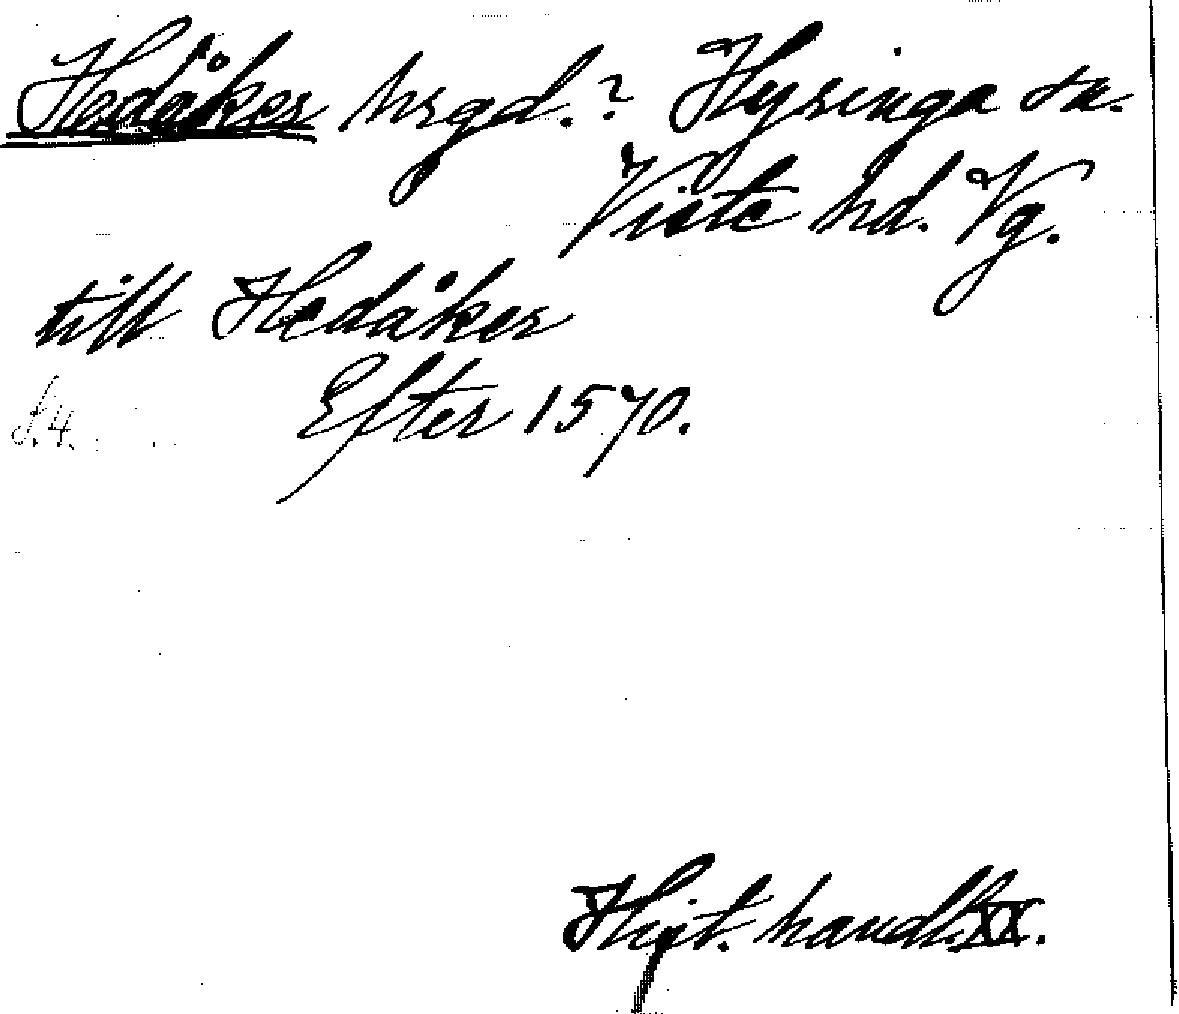 Hedåker hrgd.? Hyringa sn.
Viste hd. Vg.
till Hedåker
Efter 1570.
f. 4.
Hist. handl. XX.